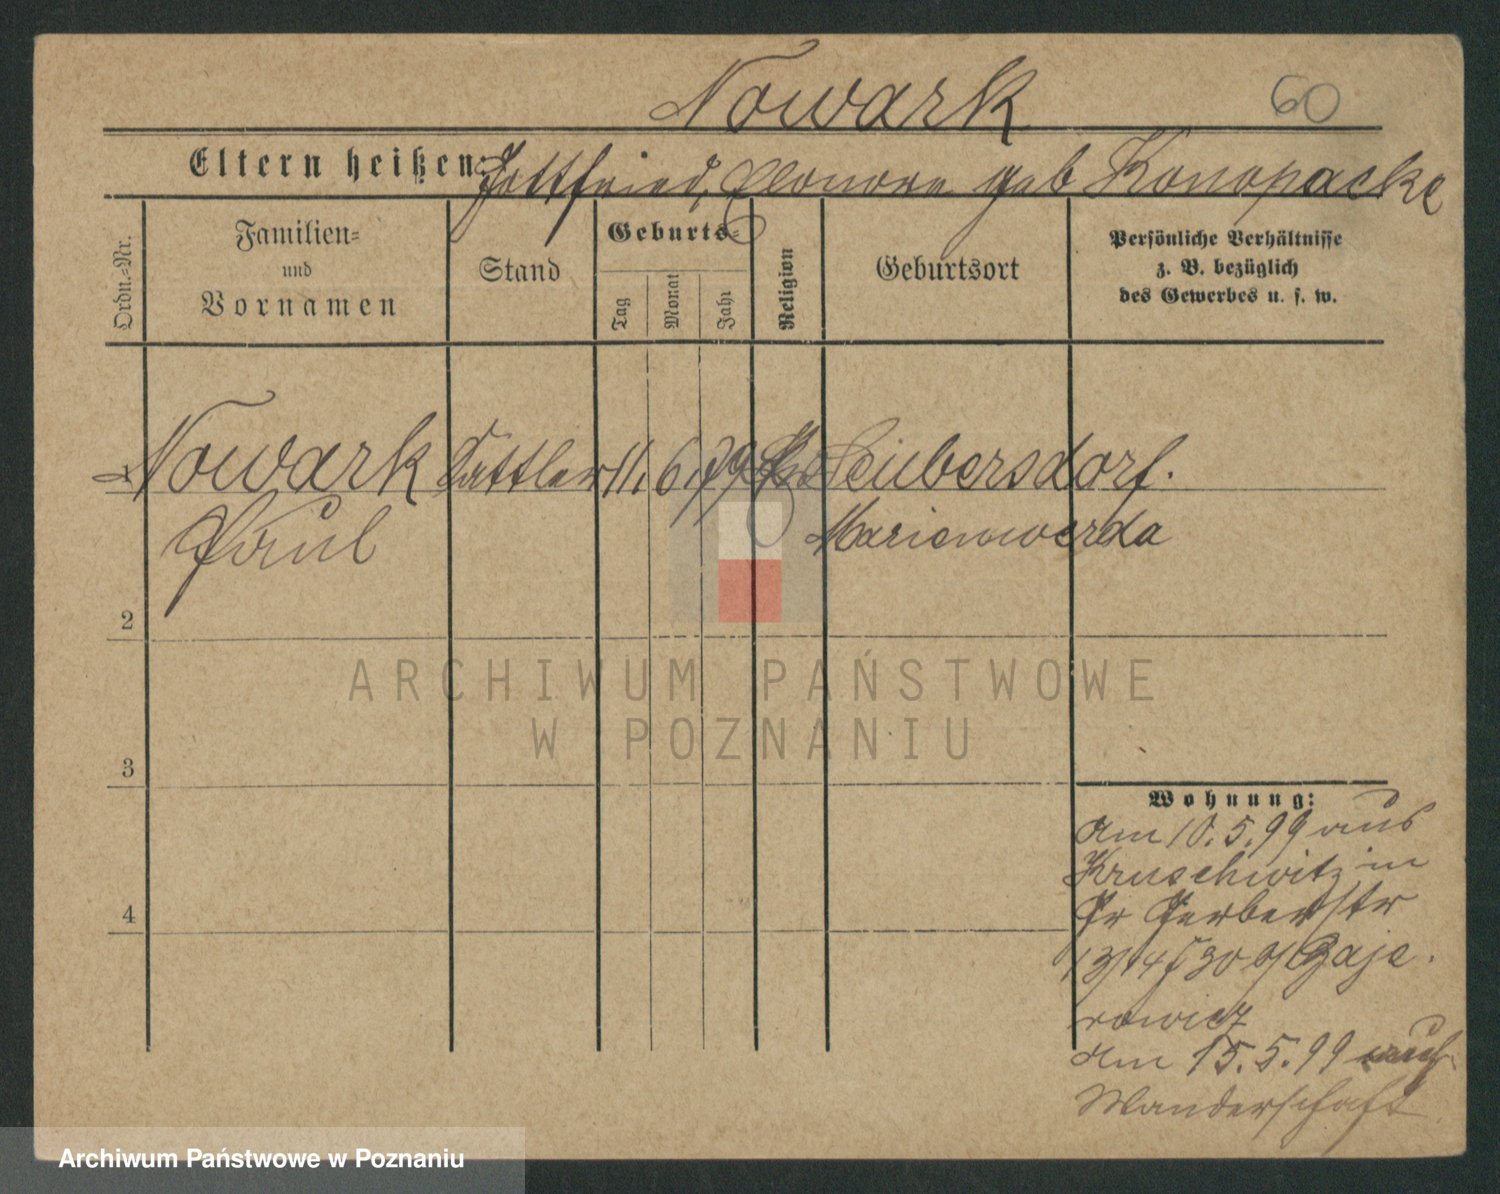 Nowark 60
Eltern heißen: Gottfried, Eleonore geb Konopacke
Ordn.-Nr.
Familien-
und
Vornamen
Stand
Geburts-
Tag
Monat
Jahr
Religion
Geburtsort
Persönliche Verhältnisse
z. B. bezüglich
des Gewerbes u. s. w.
1 Nowark Sattler 11. 6. 79 Leubersdorf.
Paul Marienwerda
2
3
4
Wohnung:
Am 10.5.99 aus
Kruschwitz in
Pr Gerberstr
13/14 b/ Zaje.
rowicz
Am 15.5.99 auf
Wanderschaft
ARCHIWUM PAŃSTWOWE
W POZNANIU
Archiwum Państwowe w Poznaniu